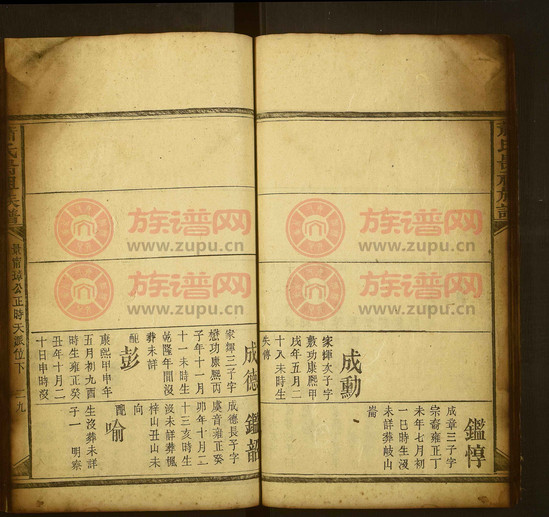 鑑惇
成章三子字
宗裔雍正丁
未年七月初
一巳時生沒
未詳葬歧山
崙
成勳
家輝次子字
敷功康熙甲
戌年五月二
十八未時生
失傳
成德
家輝三子字
懋功康熙丙
子年十一月
十一未時生
乾隆年間沒
葬未詳
配
彭
康熙甲申年
五月初九酉
時生雍正癸
丑年十月二
十日申時沒
鑑韶
成德長子字
虞音雍正癸
卯年十月二
十三亥時生
沒未詳葬楓
梓山丑山未
向
配
喻
生沒葬未詳
子一 明察
氏
族譜
公正時天派位下
二九
族谱网
www.zupu.cn
族谱网
www.zupu.cn
族谱网
www.zupu.cn
族谱网
www.zupu.cn